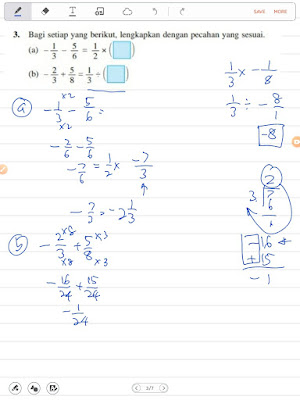 3. Bagi setiap yang berikut, lengkapkan dengan pecahan yang sesuai.
(a) - 1/3 - 5/6 = 1/2 × ( )
(b) - 2/3 + 5/8 = 1/3 ÷ ( )
1/3 × - 1/8
1/3 ÷ - 8/1
-8
a
- 1/3 ×2 ×2 - 5/6 =
- 2/6 - 5/6
- 7/6 = 1/2 × -7/3
- 7/3 = -2 1/3
2
3 7
6
1
b
- 2/3 ×8 ×8 + 5/8 ×3 ×3
- 16/24 + 15/24
- 1/24
- 16
+ 15
- 1
1/7